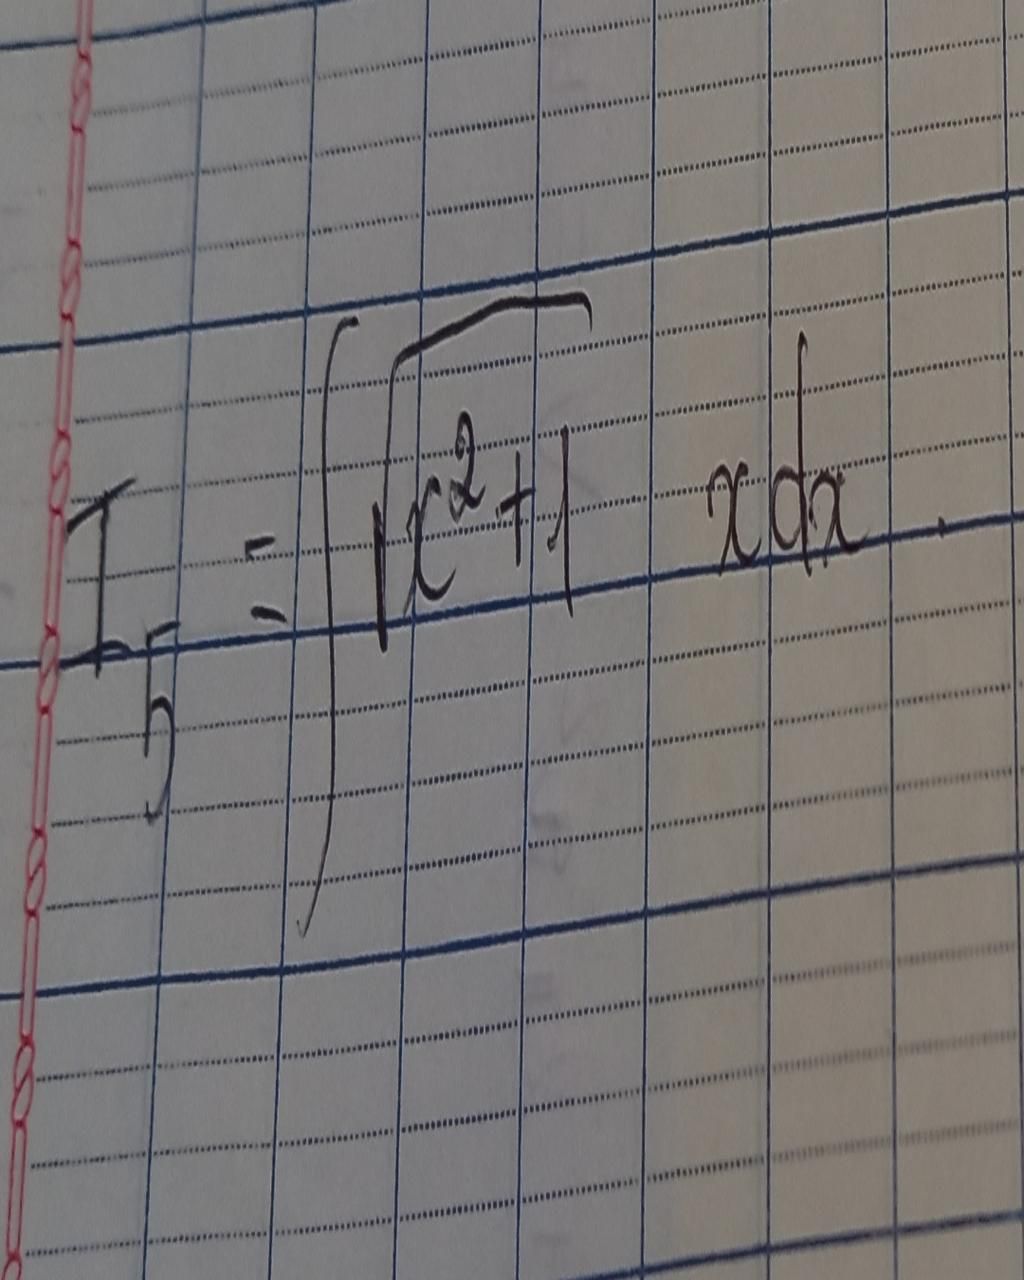 I₅ = ∫√(x²+1) xdx.